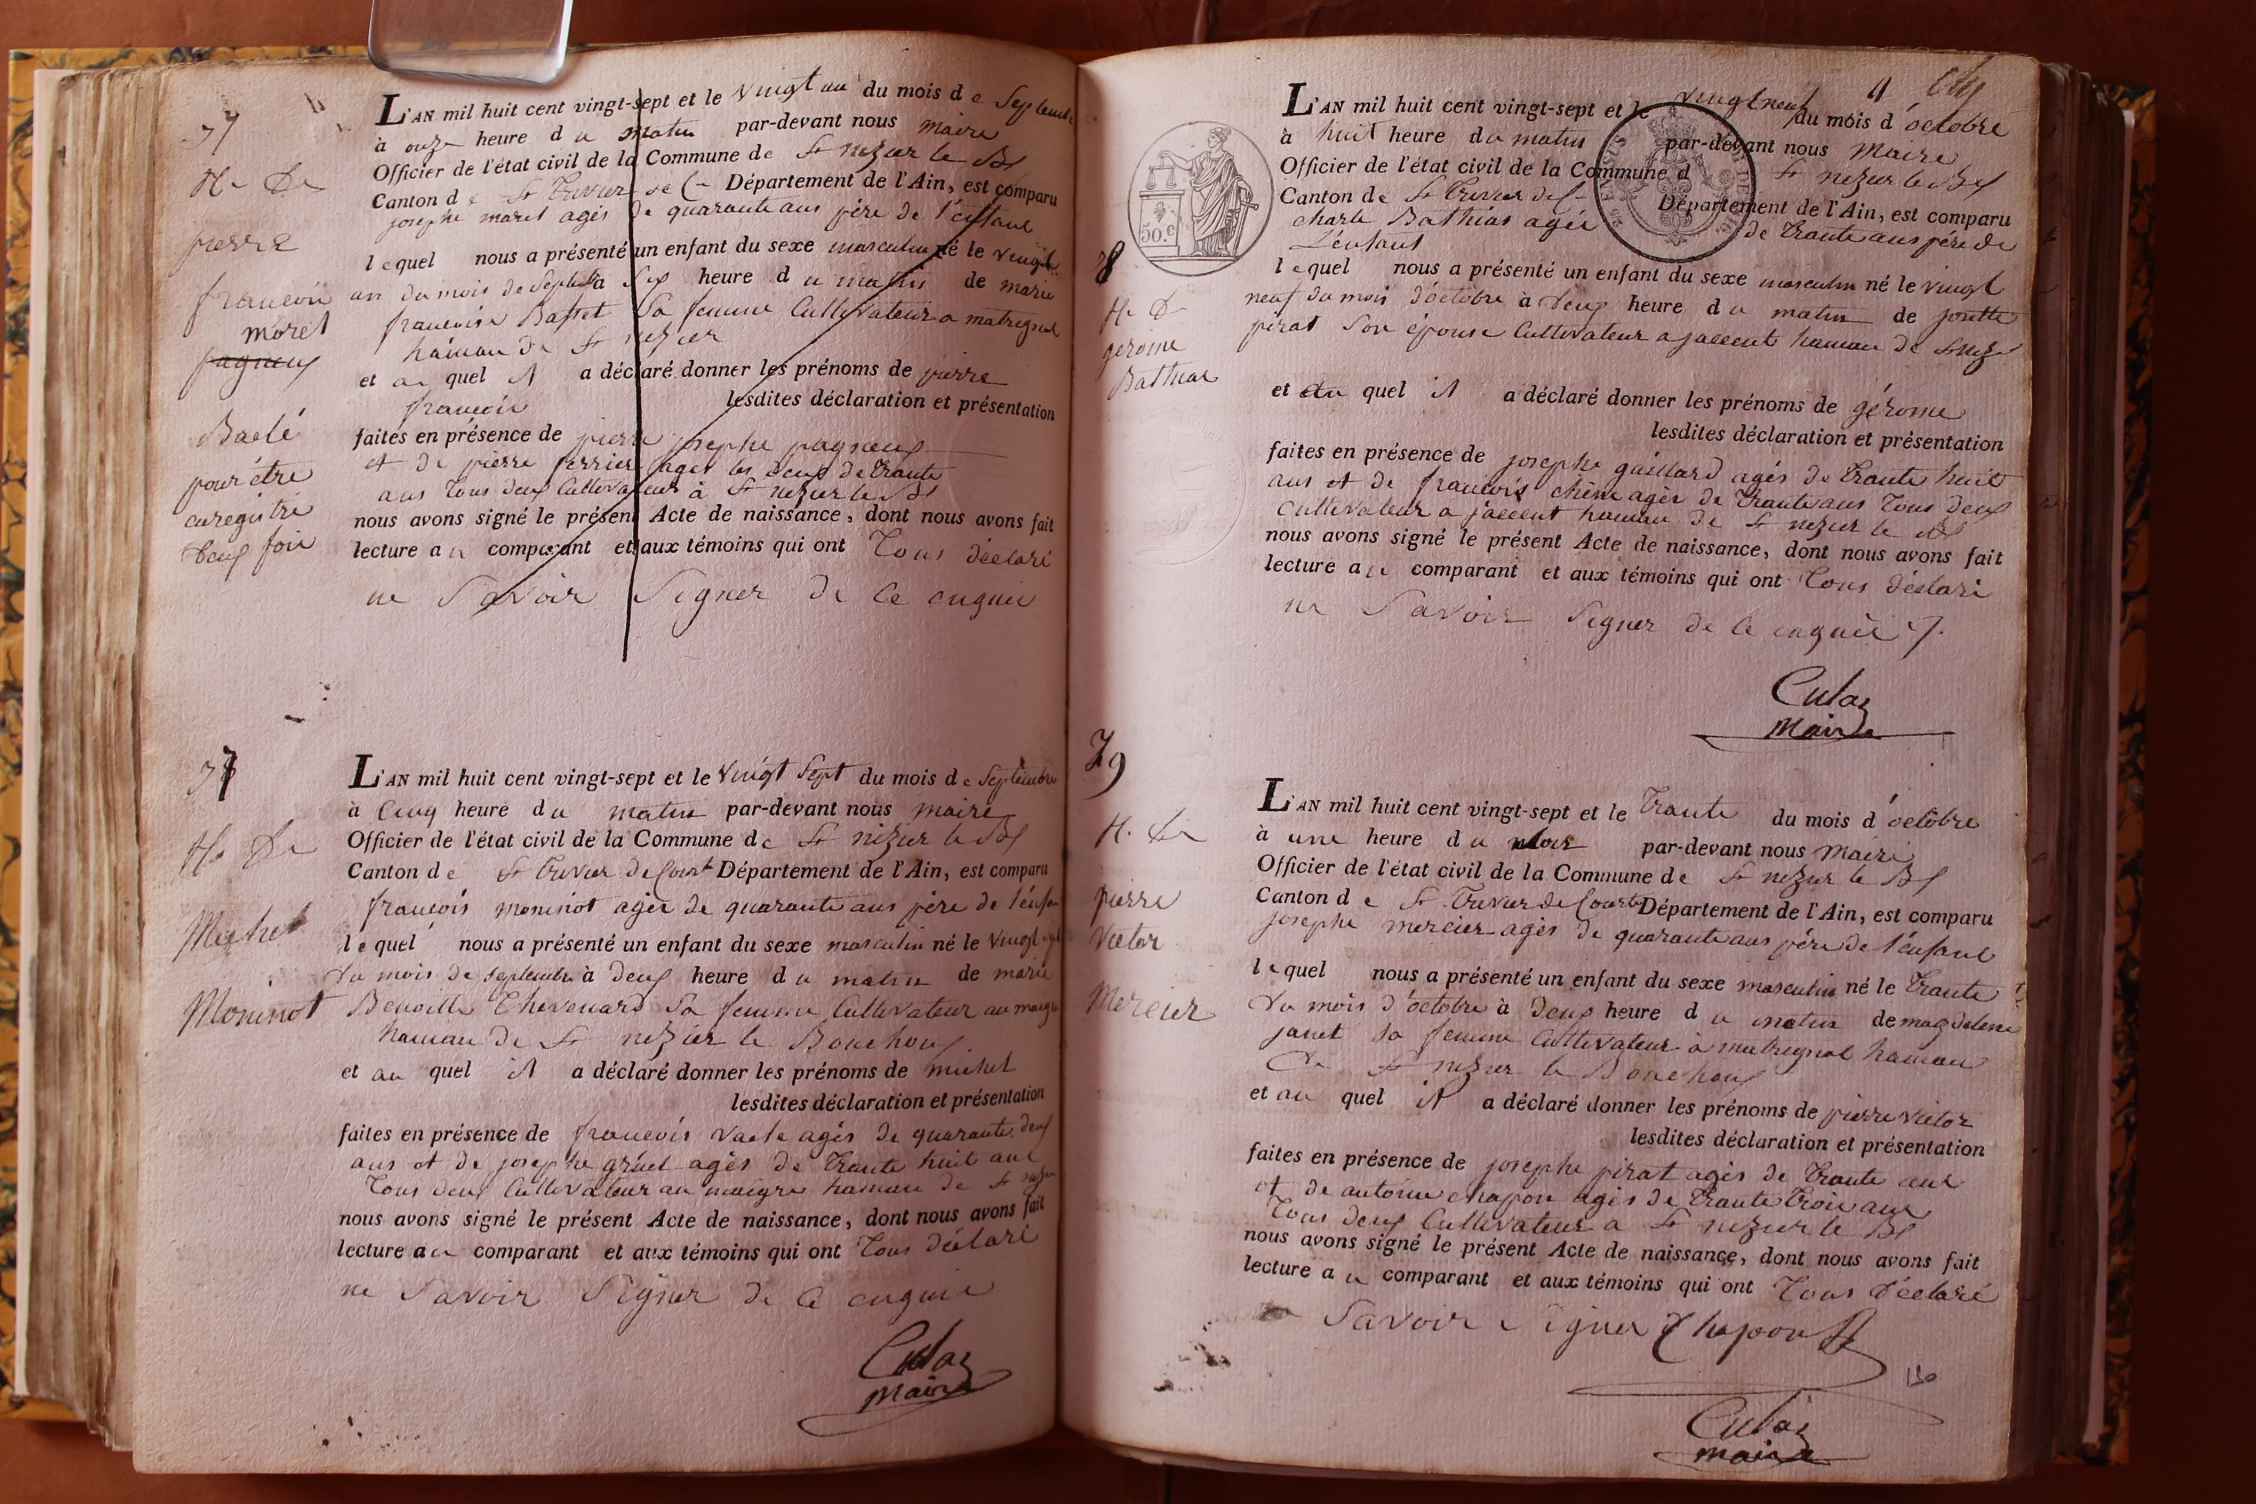 37
N. de
pierre
francois
morel
pagneux
Baclé
pour être
enregistré
deux fois
L'AN mil huit cent vingt-sept et le vingt un du mois de Septembre
à onze heure du matin par-devant nous maire
Officier de l'état civil de la Commune de St nizier le Bx
Canton de St trivier de C Département de l'Ain, est comparu
josephe morel agés de quarante ans père de l'enfant
lequel nous a présenté un enfant du sexe masculin né le vingt
un du mois de Septb à Six heure du matin de marie
francoise Basset Sa femme Cultivateur a matregnal
hámau de St nizier
et au quel il a déclaré donner les prénoms de pierre
francois lesdites déclaration et présentation
faites en présence de pierre josephe pagneux
et de pierre ferrier ages les deux de trante
ans tous deux Cultivateur à St nizier le Bx
nous avons signé le présent Acte de naissance, dont nous avons fait
lecture au comparant et aux témoins qui ont Tous déclaré
ne Savoir Signer de Ce enquis
37
N. de
Michel
Moninot
L'AN mil huit cent vingt-sept et le vingt Sept du mois de Septembre
à Cinq heure du matin par-devant nous maire
Officier de l'état civil de la Commune de St nizier le Bx
Canton de St trivier de Court Département de l'Ain, est comparu
francois moninot agée de quarante ans père de l'enfan
lequel nous a présenté un enfant du sexe masculin né le vingt
du mois de septembre à deux heure du matin de marie
Benoitte Chevenard Sa femme Cultivateur au maigre
hamau de St nizier le Bouchoux
et au quel il a déclaré donner les prénoms de michel
lesdites déclaration et présentation
faites en présence de francois vacle agés de quarante deux
ans et de josephe gruel agés de trante huit ans
Tous deux Cultivateur au maigre hamau de St nizier
nous avons signé le présent Acte de naissance, dont nous avons fait
lecture au comparant et aux témoins qui ont Tous déclaré
ne Savoir Signer de Ce enquis
Culaz
maire
50.c
38
N. D
gerome
Bathias
L'AN mil huit cent vingt-sept et le vingt neuf du mois d'octobre
à huit heure du matin par-devant nous Maire
Officier de l'état civil de la Commune d St nizier le Bx
Canton de St trivier de C Département de l'Ain, est comparu
charle Bathias agée de trante ans père de
L'enfant
lequel nous a présenté un enfant du sexe masculin né le vingt
neuf du mois d'octobre à deux heure du matin de josette
pirat Son épouse Cultivateur a jassent hamau de St niz
et au quel il a déclaré donner les prénoms de gérome
lesdites déclaration et présentation
faites en présence de josephe guillard agés de trante huit
ans et de francois chêne agés de trante ans tous deux
Cultivateur a jassent hamau de St nizier le Bx
nous avons signé le présent Acte de naissance, dont nous avons fait
lecture au comparant et aux témoins qui ont Tous déclaré
ne Savoir Signer de Ce enquis
Culaz
Maire
39
N. de
pierre
victor
Mercier
L'AN mil huit cent vingt-sept et le trante du mois d'octobre
à une heure du soir par-devant nous maire
Officier de l'état civil de la Commune de St nizier le Bx
Canton de St trivier de Court Département de l'Ain, est comparu
josephe mercier agés de quarante ans père de l'énfant
lequel nous a présenté un enfant du sexe masculin né le trante
du mois d'octobre à deux heure du matin de magdelene
janet sa femme Cultivateur à matregnal hamau
de St nizier le Bouchoux
et au quel il a déclaré donner les prénoms de pierre victor
lesdites déclaration et présentation
faites en présence de josephe pirat agés de trante ans
et de antoine chapon agés de trante trois ans
Tous deux Cultivateur a St nizier le Bx
nous avons signé le présent Acte de naissance, dont nous avons fait
lecture au comparant et aux témoins qui ont Tous déclaré
Savoir Signer Chapon
130
Culaz
maire